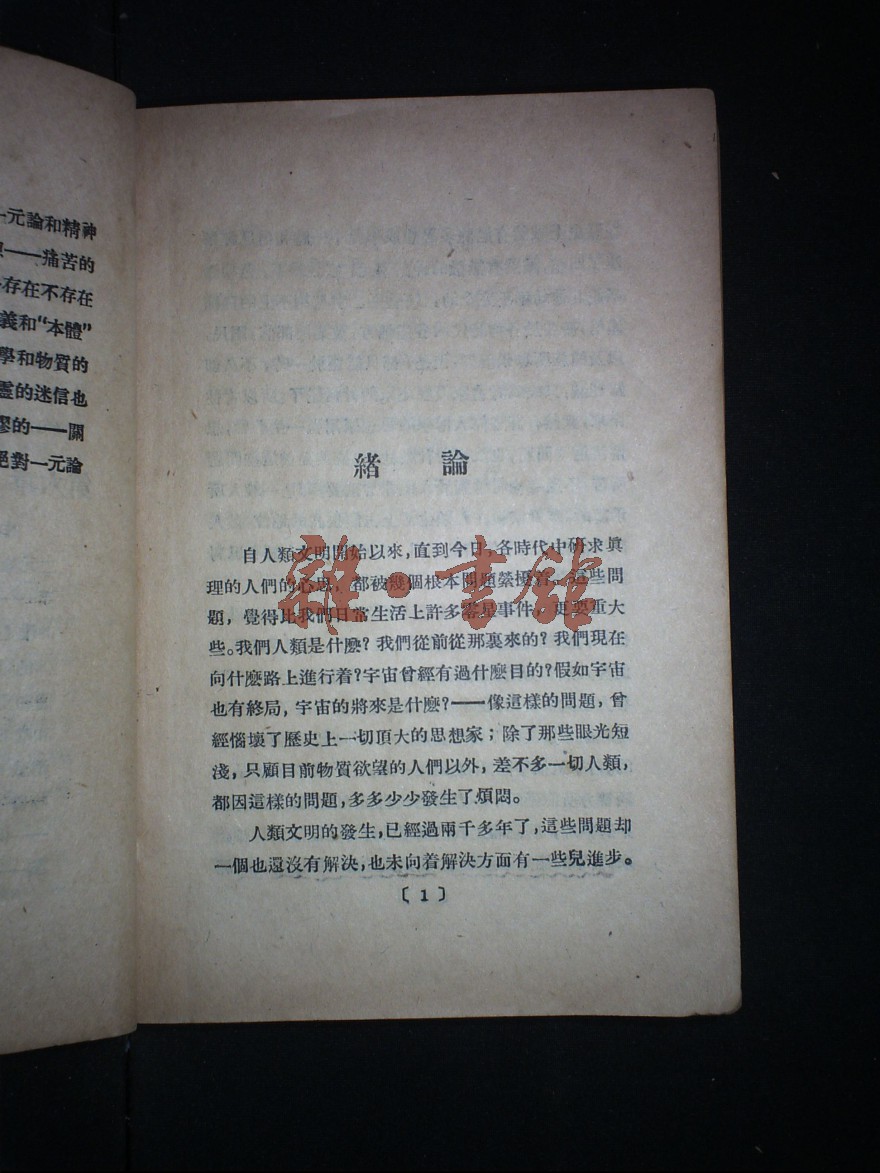 一元論和精神
——痛苦的
存在不存在
義和“本體”
學和物質的
靈的迷信也
謬的——關
絕對一元論
緒論
自人類文明開始以來，直到今日，各時代中研求眞
理的人們的心思，都被幾個根本問題縈擾着。這些問
題，覺得比我們日常生活上許多零星事件，更要重大
些。我們人類是什麽？我們從前從那裏來的？我們現在
向什麽路上進行着？宇宙曾經有過什麽目的？假如宇宙
也有終局，宇宙的將來是什麽？——像這樣的問題，曾
經惱壞了歷史上一切頂大的思想家；除了那些眼光短
淺，只顧目前物質欲望的人們以外，差不多一切人類，
都因這樣的問題，多多少少發生了煩悶。
人類文明的發生，已經過兩千多年了，這些問題却
一個也還沒有解決，也未向着解決方面有一些兒進步。
〔1〕
雜·書館